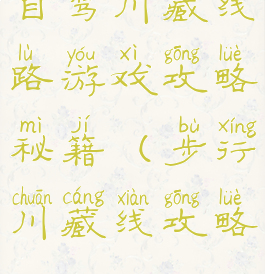 自驾川藏线
lù yóu xì gōng lüè
路游戏攻略
mì jí bù xíng
秘籍(步行
chuān cáng xiàn gōng lüè
川藏线攻略